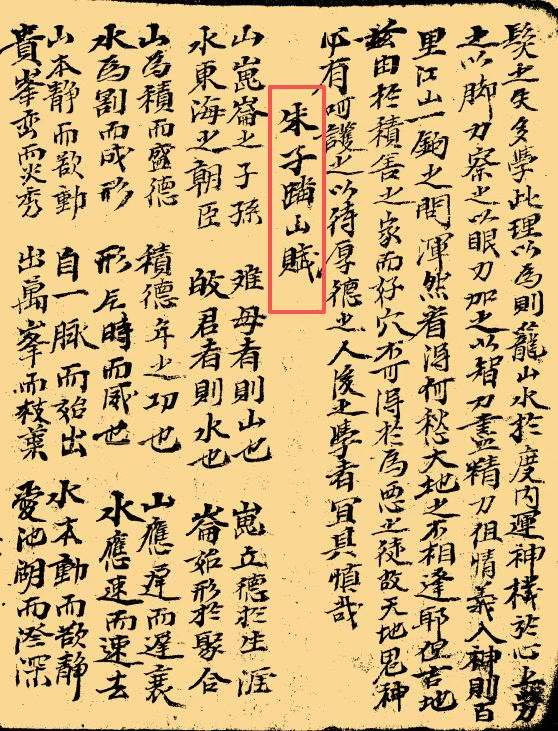 髮之失多學此理以為則籠山水於度內運神機於心上勞
之以脚力察之以眼力加之以智力盡精力徂情義入神則百
里江山一鈎之間渾然看得何愁大地之不相逢耶但吉地
玆由於積善之家而好穴不可得於為惡之徒故天地鬼神
必有呵護之以待厚德之人後之學者宜其慎哉
朱子踏山賦
山崑崙之子孫 难母者則山也 崑立穗於生涯
水東海之朝臣 皈君者則水也 崙始形於聚合
山為積而盛德 積德年之功也 山應遲而遲衰
水為割而成形 形 時而威也 水應速而速去
山本静而欲動 自一脉而始出 水本動而欲静
貴峯巒而 秀 出萬峯而枝葉 愛池湖而 深